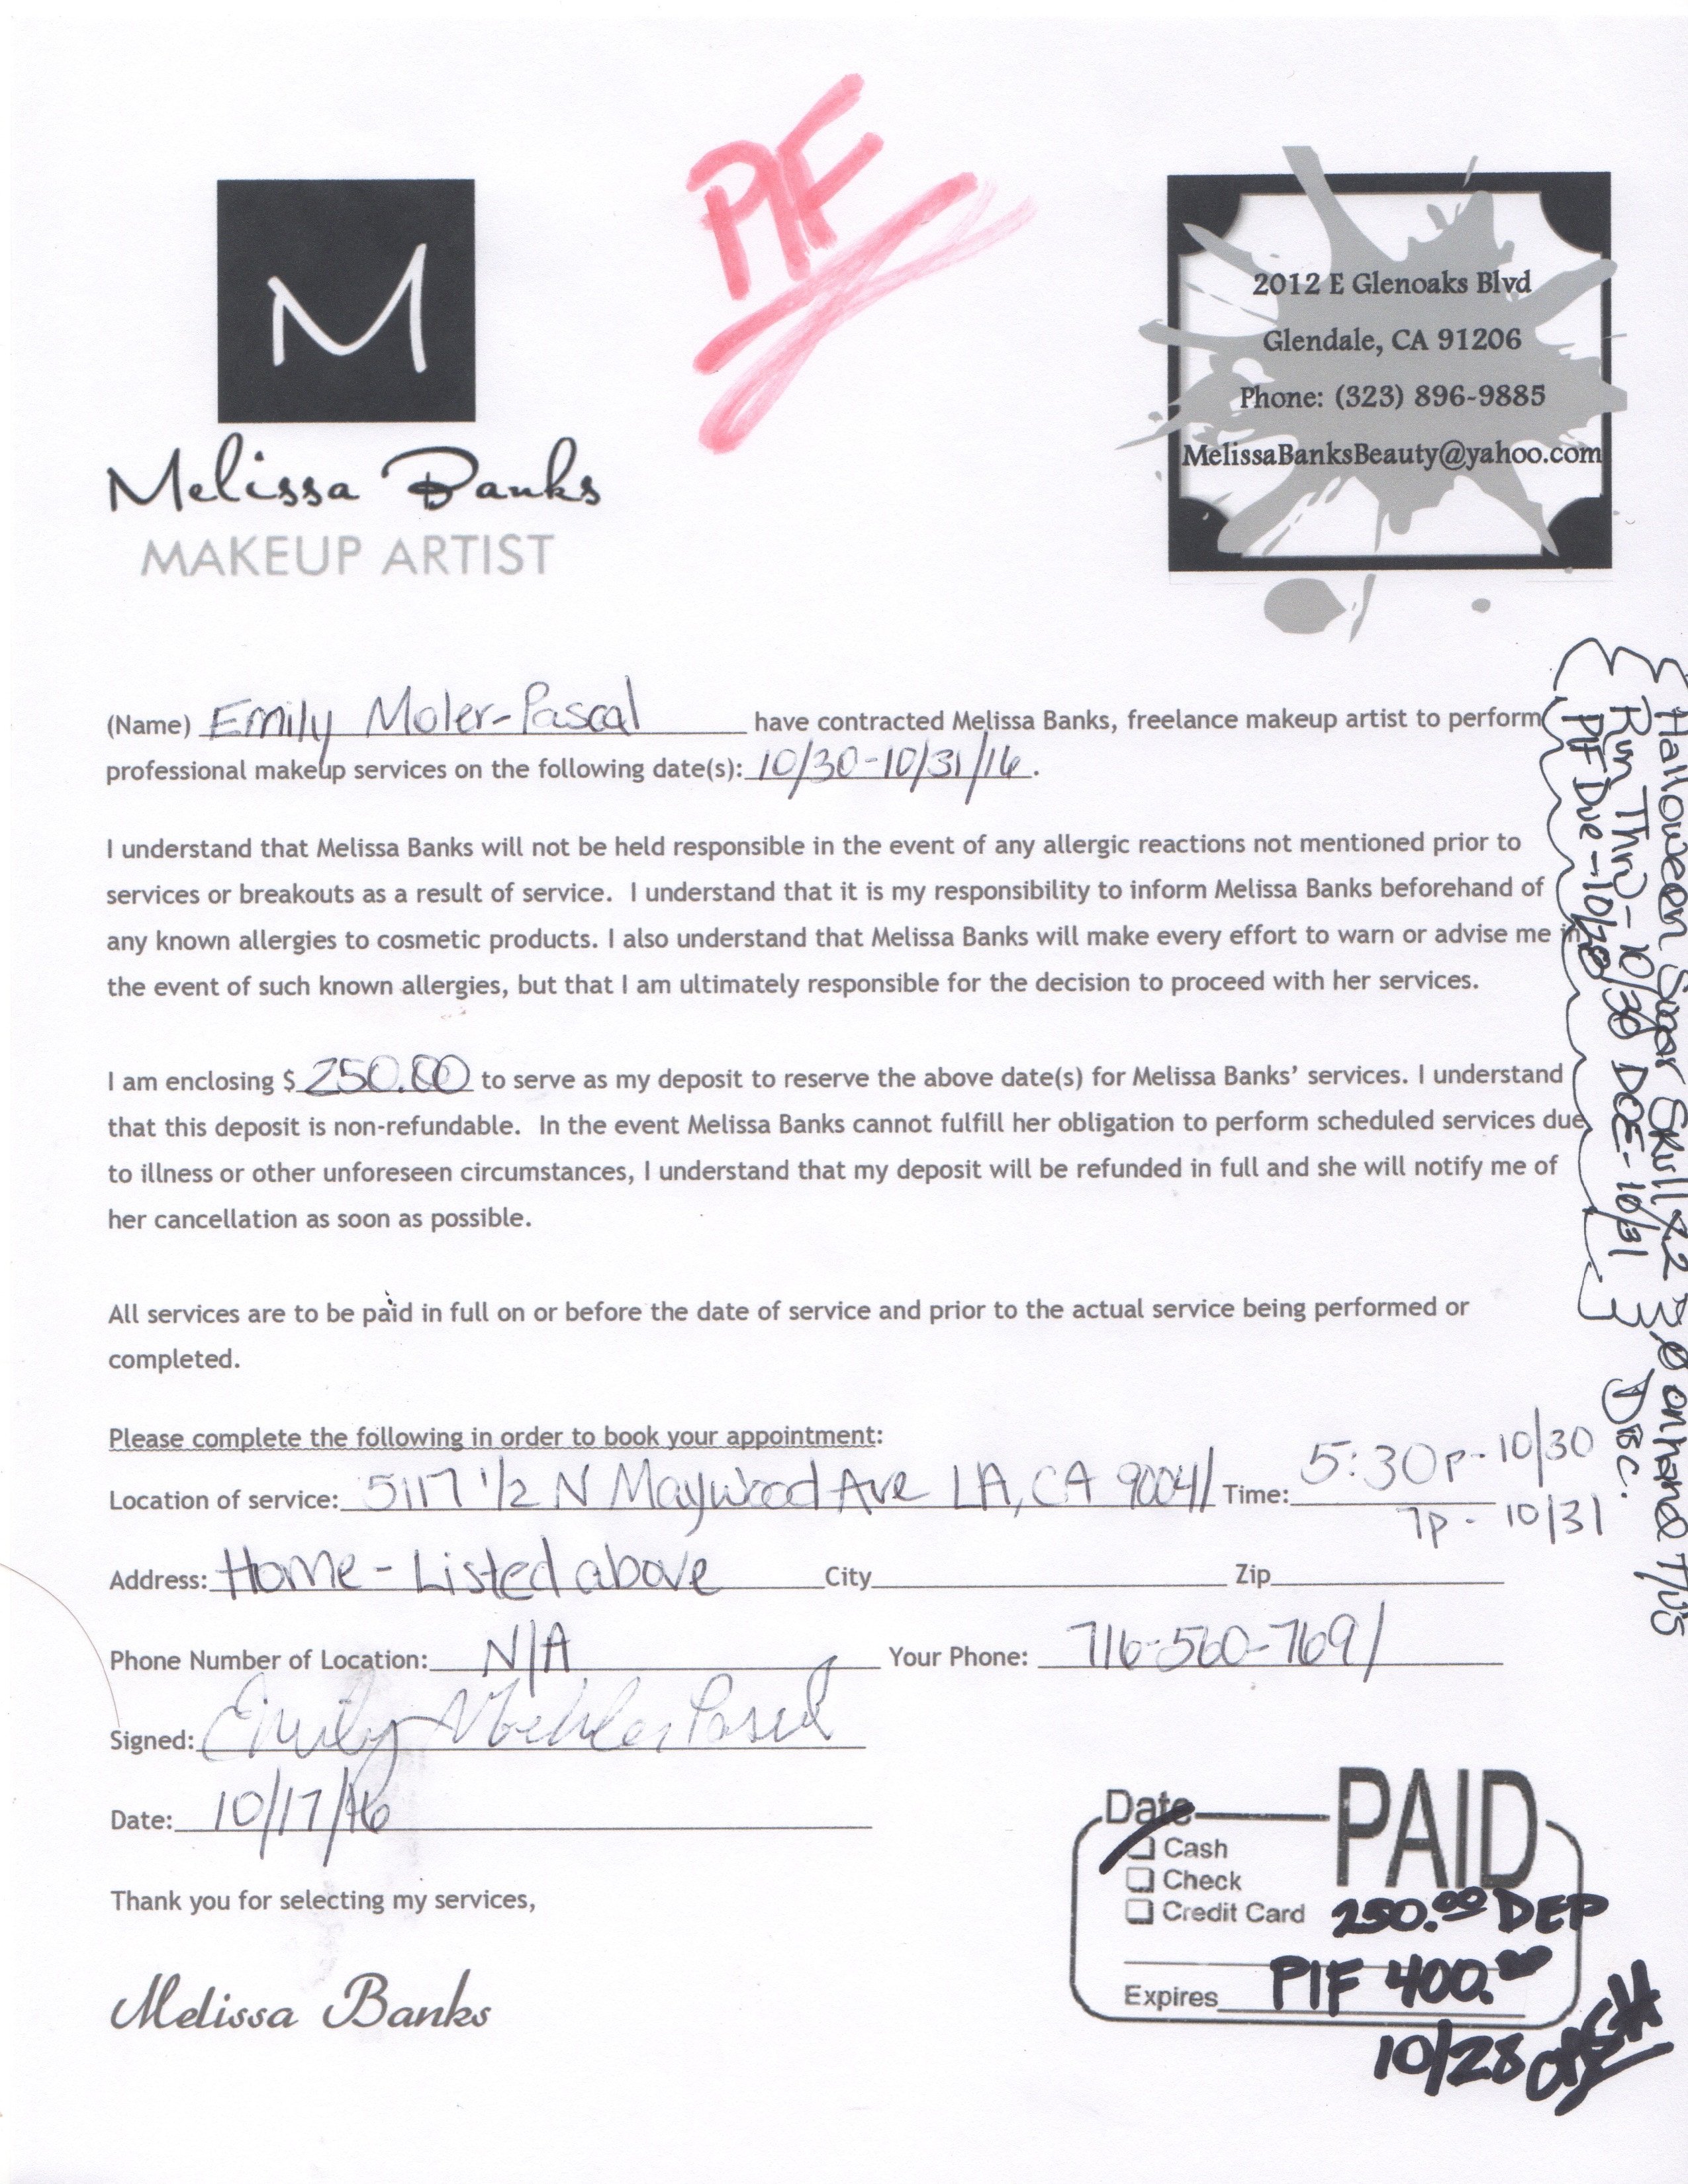 PIF
M
Melissa Banks
MAKEUP ARTIST
2012 E Glenoaks Blvd
Glendale, CA 91206
Phone: (323) 896-9885
MelissaBanksBeauty@yahoo.com
(Name) Emily Moler-Pascal have contracted Melissa Banks, freelance makeup artist to perform
professional makeup services on the following date(s): 10/30-10/31/16.
I understand that Melissa Banks will not be held responsible in the event of any allergic reactions not mentioned prior to
services or breakouts as a result of service. I understand that it is my responsibility to inform Melissa Banks beforehand of
any known allergies to cosmetic products. I also understand that Melissa Banks will make every effort to warn or advise me in
the event of such known allergies, but that I am ultimately responsible for the decision to proceed with her services.
I am enclosing $ 250.00 to serve as my deposit to reserve the above date(s) for Melissa Banks' services. I understand
that this deposit is non-refundable. In the event Melissa Banks cannot fulfill her obligation to perform scheduled services due
to illness or other unforeseen circumstances, I understand that my deposit will be refunded in full and she will notify me of
her cancellation as soon as possible.
All services are to be paid in full on or before the date of service and prior to the actual service being performed or
completed.
Please complete the following in order to book your appointment:
Location of service: 5117 1/2 N Maywood Ave LA, CA 90041 Time: 5:30p-10/30
7p - 10/31
Address: Home - Listed above City Zip
Phone Number of Location: N/A Your Phone: 716-560-7691
Signed: Emily Moehler Pascal
Date: 10/17/16
Thank you for selecting my services,
Melissa Banks
Halloween Sugar Skull x2 onhand T/U's
Run Thru - 10/30 DOE - 10/31 DBC.
PIF Due - 10/28
Date PAID
Cash
Check
Credit Card 250.00 DEP
PIF 400.00
Expires
10/28 CASH